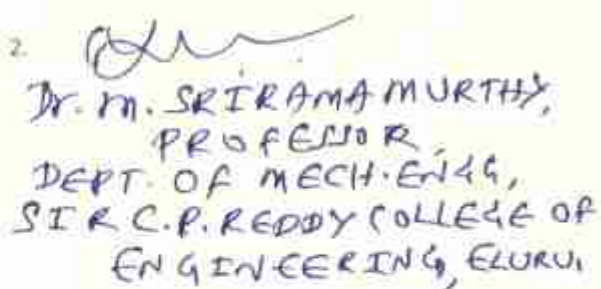 2.
Dr. M. SRIRAMAMURTHY,
PROFESSOR,
DEPT. OF MECH. ENGG,
SIR C.P. REDDY COLLEGE OF
ENGINEERING, ELURU.